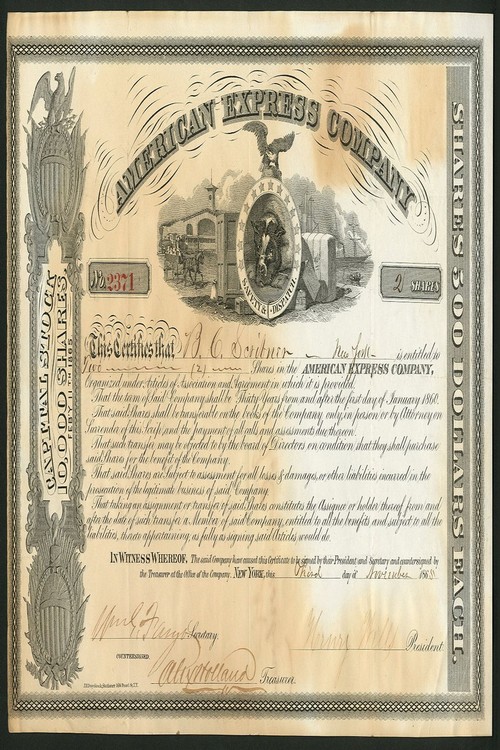 AMERICAN EXPRESS COMPANY
SAFETY & DISPATCH
No 2371
2 SHARES
CAPITAL STOCK
10,000 SHARES
SHARES 500 DOLLARS EACH.
This Certifies that B. C. Scribner - New York is entitled to
Two (2) Shares in the AMERICAN EXPRESS COMPANY,
Organized under Articles of Association and Agreement in which it is provided.
That the term of said Company shall be Thirty Years from and after the first day of January 1860.
That said Shares shall be transferable on the books of the Company only, in person or by Attorney on
Surrender of this Scrip, and the payment of all calls and assessments due thereon.
That such transfer may be objected to by the board of Directors on condition that they shall purchase
said Shares for the benefit of the Company.
That said Shares are subject to assessment for all losses & damages, or other liabilities incurred in the
prosecution of the legitimate business of said Company.
That taking an assignment or transfer of said Shares constitutes the Assignee or holder thereof from and
after the date of such transfer a Member of said Company, entitled to all the benefits and subject to all the
liabilities, thereto appertaining, as fully as signing said Articles would do.
IN WITNESS WHEREOF, The said Company have caused this Certificate to be signed by their President and Secretary and countersigned by
the Treasurer at the Office of the Company, NEW YORK, this Third day of November 186
Wm G Fargo Secretary.
Henry Wells President.
COUNTERSIGNED.
Alex Holland Treasurer.